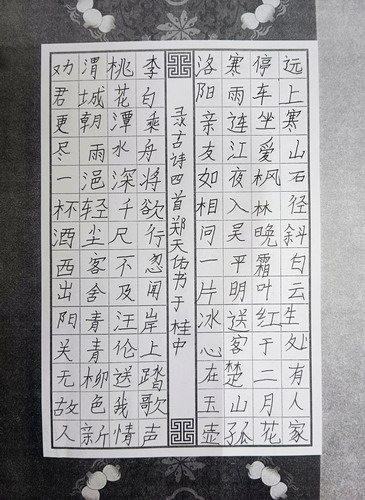 远上寒山石径斜白云生处有人家
停车坐爱枫林晚霜叶红于二月花
寒雨连江夜入吴平明送客楚山孤
洛阳亲友如相问一片冰心在玉壶
录古诗四首郑天佑书于桂中
李白乘舟将欲行忽闻岸上踏歌声
桃花潭水深千尺不及汪伦送我情
渭城朝雨浥轻尘客舍青青柳色新
劝君更尽一杯酒西出阳关无故人